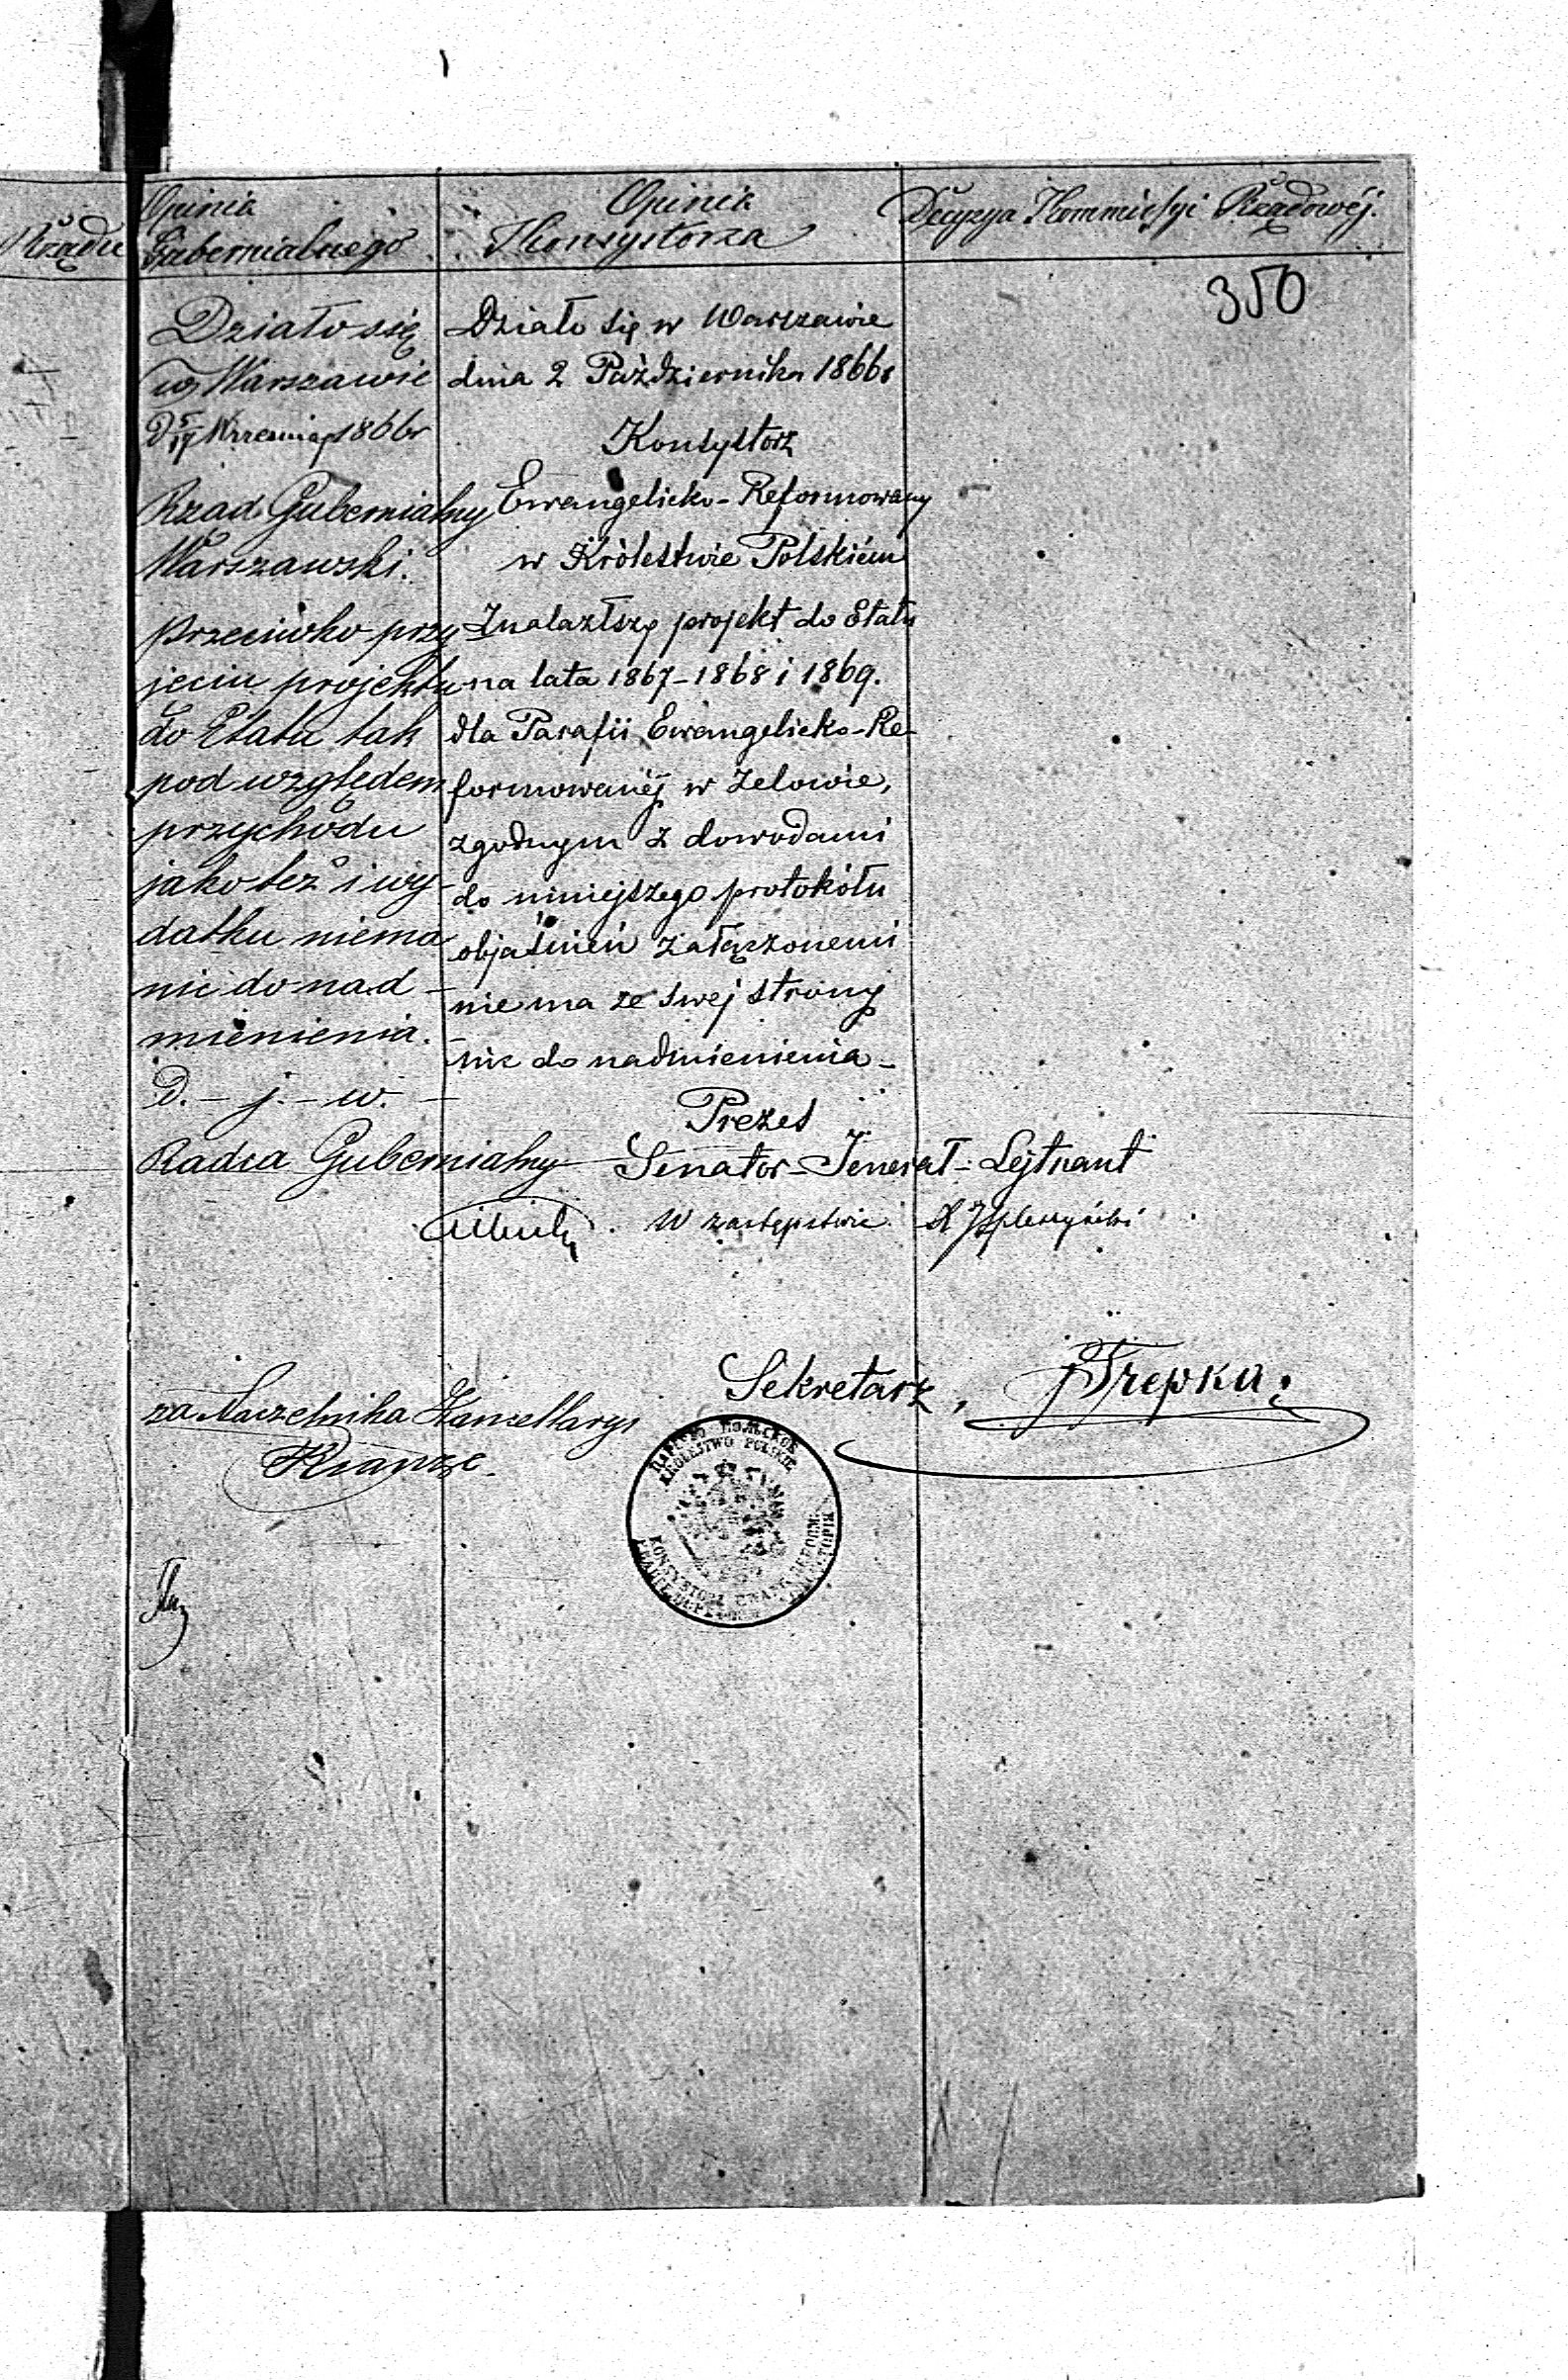 Rządu
Opinia
Gubernialnego
Działo się
w Warszawie
D 5/17 Września 1866r
Rząd Gubernialny
Warszawski.
przeciwko przy
jęciu projektu
do Etatu tak
pod względem
przychodu
jako też i wy-
datku niema
nic do nad-
mienienia.
D. - j. - w. -
Radca Gubernialny
za Naczelnika Kancellaryi
Opinia
Konsystorza
Działo się w Warszawie
dnia 2 Października 1866r
Konsystorz
Ewangelicko-Reformowany
w Królestwie Polskiém
Znalazłszy projekt do Etatu
na lata 1867-1868 i 1869.
dla Parafii Ewangelicko-Re-
formowanéj w Zelowie,
zgodnym z dowodami
do niniejszego protokółu
objaśnień załączonemi
nie ma ze swej strony
nic do nadmienienia -
Prezes
Senator-Jenerał-Lejtnant
W zastępstwie
Sekretarz, JTrepka.
КРÓLESTWO POLSKIE
Decyzya Kommissyi Rządowéj.
350